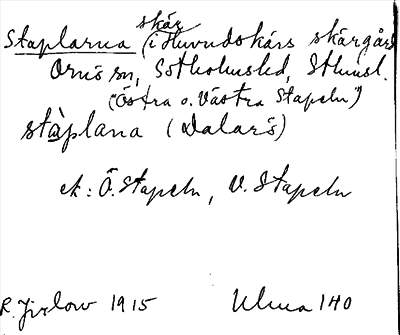 skär
Staplarna (i Huvudskärs skärgård
Ornö sn, Sotholms hd, Sthmsl.
("Östra o. Västra Stapeln")
stàplana (Dalarö)
ek: Ö. Stapeln, V. Stapeln
R. Jirlow 1915 Ulma 140